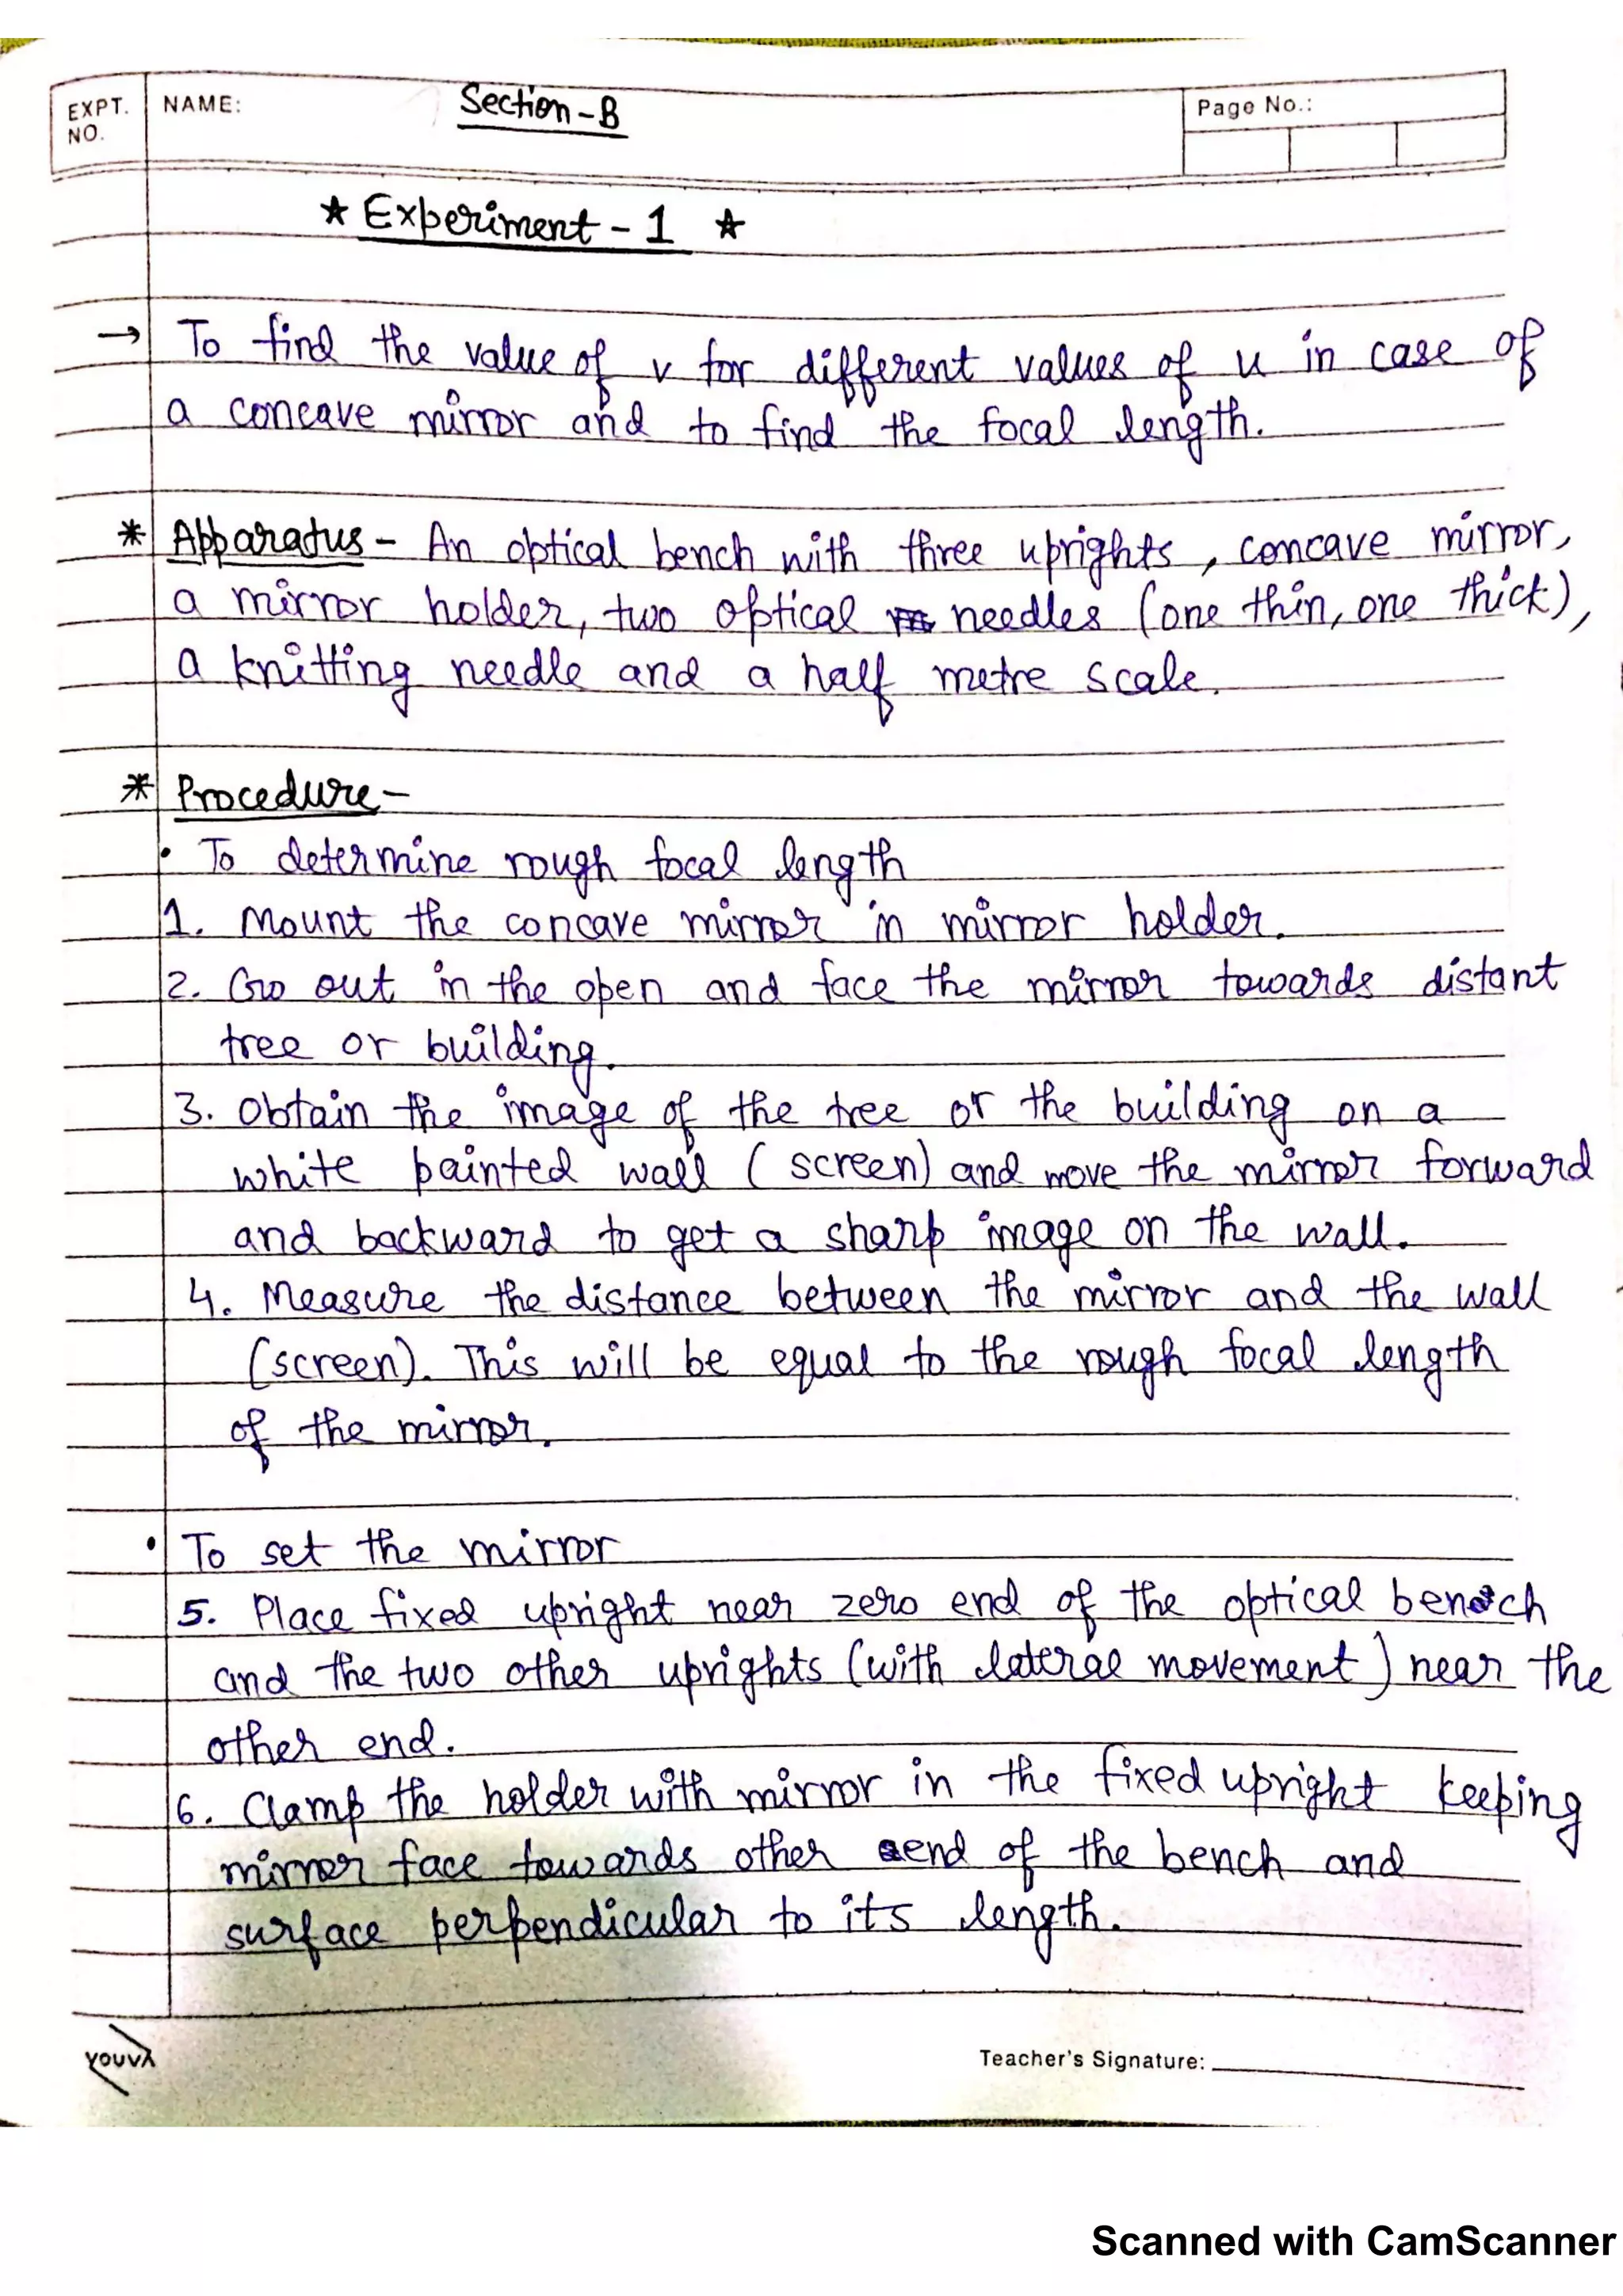 EXPT. NO.
NAME:
Section-B
Page No.:
★ Experiment - 1 ★
→ To find the value of v for different values of u in case of
a concave mirror and to find the focal length.
* Apparatus - An optical bench with three uprights, concave mirror,
a mirror holder, two optical needles (one thin, one thick),
a knitting needle and a half metre scale.
* Procedure -
• To determine rough focal length
1. Mount the concave mirror in mirror holder.
2. Go out in the open and face the mirror towards distant
tree or building.
3. Obtain the image of the tree or the building on a
white painted wall (screen) and move the mirror forward
and backward to get a sharp image on the wall.
4. Measure the distance between the mirror and the wall
(screen). This will be equal to the rough focal length
of the mirror.
• To set the mirror
5. Place fixed upright near zero end of the optical bench
and the two other uprights (with lateral movement) near the
other end.
6. Clamp the holder with mirror in the fixed upright keeping
mirror face towards other end of the bench and
surface perpendicular to its length.
youva
Teacher's Signature:
Scanned with CamScanner